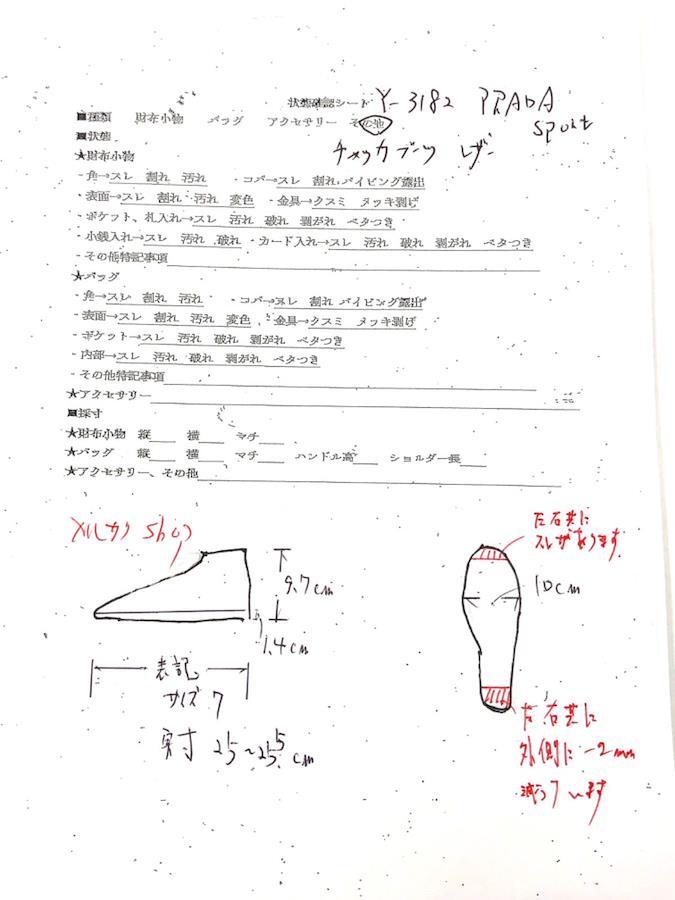 状態確認シート Y-3182 PRADA
■種類　財布小物　バッグ　アクセサリー　その他 sport
■状態 チャッカブーツ レザー
★財布小物
・角→スレ　割れ　汚れ　・コバ→スレ　割れ パイピング露出
・表面→スレ　割れ　汚れ　変色　・金具→クスミ　メッキ剥げ
・ポケット、札入れ→スレ　汚れ　破れ　剥がれ　ベタつき
・小銭入れ→スレ　汚れ　破れ・カード入れ→スレ　汚れ　破れ　剥がれ　ベタつき
・その他特記事項
★バッグ
・角→スレ　割れ　汚れ　・コバ→スレ　割れ パイピング露出
・表面→スレ　割れ　汚れ　変色　・金具→クスミ　メッキ剥げ
・ポケット→スレ　汚れ　破れ　剥がれ　ベタつき
・内部→スレ　汚れ　破れ　剥がれ　ベタつき
・その他特記事項
★アクセサリー
■採寸
★財布小物　縦　横　マチ
★バッグ　縦　横　マチ　ハンドル高　ショルダー長
★アクセサリー、その他
メルカリ shop
左右共に
スレがあります
9.7cm
10cm
1.4cm
表記
サイズ 7
実寸 25~25.5cm
左右共に
外側に -2mm
減っています